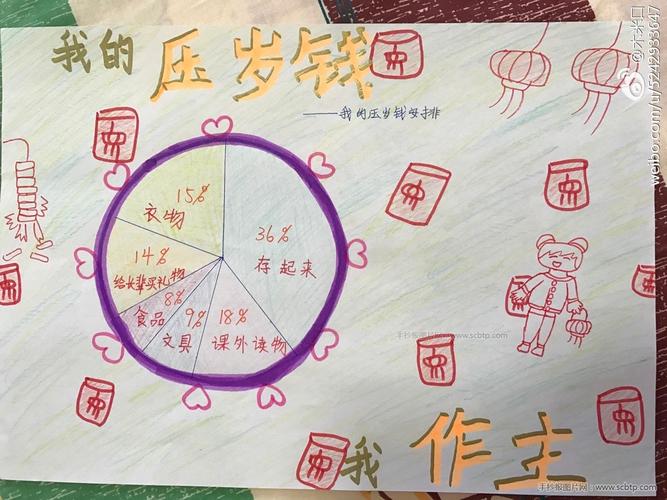 我的压岁钱
——我的压岁钱安排
15%
衣物
36%
存起来
14%
给长辈买礼物
8%
食品
9%
文具
18%
课外读物
我作主
手抄报图片网 | www.scbtp.com
手抄报图片网 | www.scbtp.com
weibo.com/u/5242933647